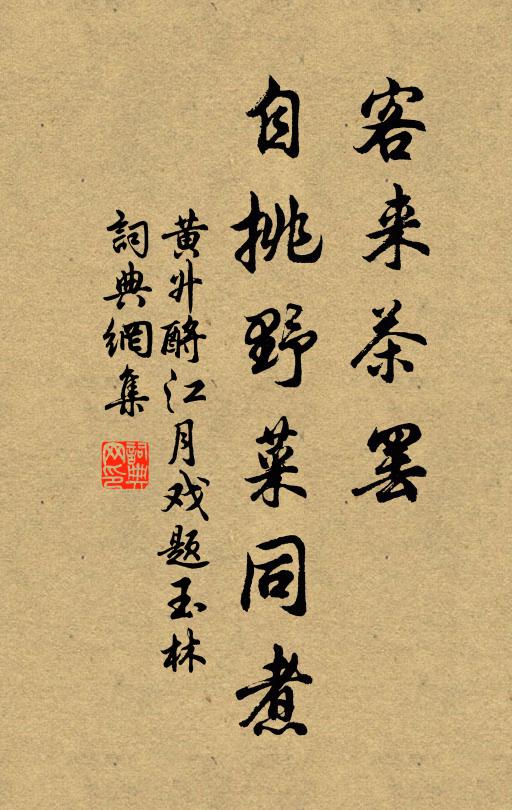 客来茶罢
自挑野菜同煮
黄升酹江月戏题玉林
詞典網集
詞典网印